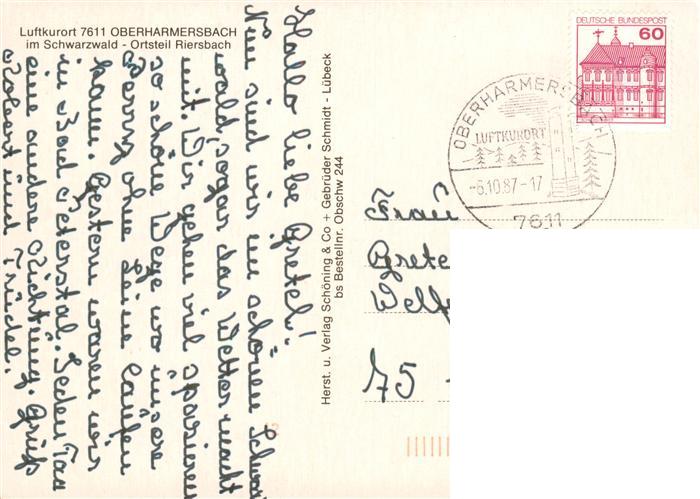 Luftkurort 7611 OBERHARMERSBACH
im Schwarzwald - Ortsteil Riersbach
Hallo liebe Gretel!
Nun sind wir im schönen Schwarz
wald, sogar das Wetter macht
mit. Wir gehen viel spazieren
so schöne Wege wo unsere
Jenny ohne Leine laufen
kann. Gestern waren wir
in Bad Peterstal. Jeden Tag
eine andere Richtung. Gruß
Robert und Trudel.
Herst. u. Verlag Schöning & Co + Gebrüder Schmidt - Lübeck
bs Bestellnr. Obschw 244
DEUTSCHE BUNDESPOST
60
OBERHARMERSBACH
LUFTKURORT
-6.10.87-17
7611
Frau
Grete
Welf
75